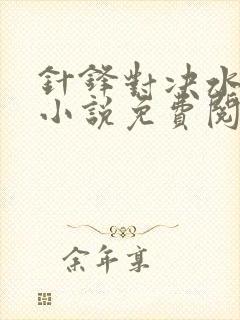 針鋒對決水
小說免費閱
余年寡